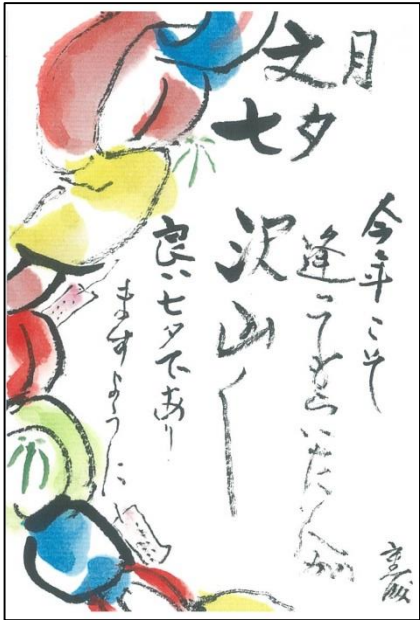 文月
七夕
今年こそ
逢 いたい人が
沢山
良い七夕であり
ますように